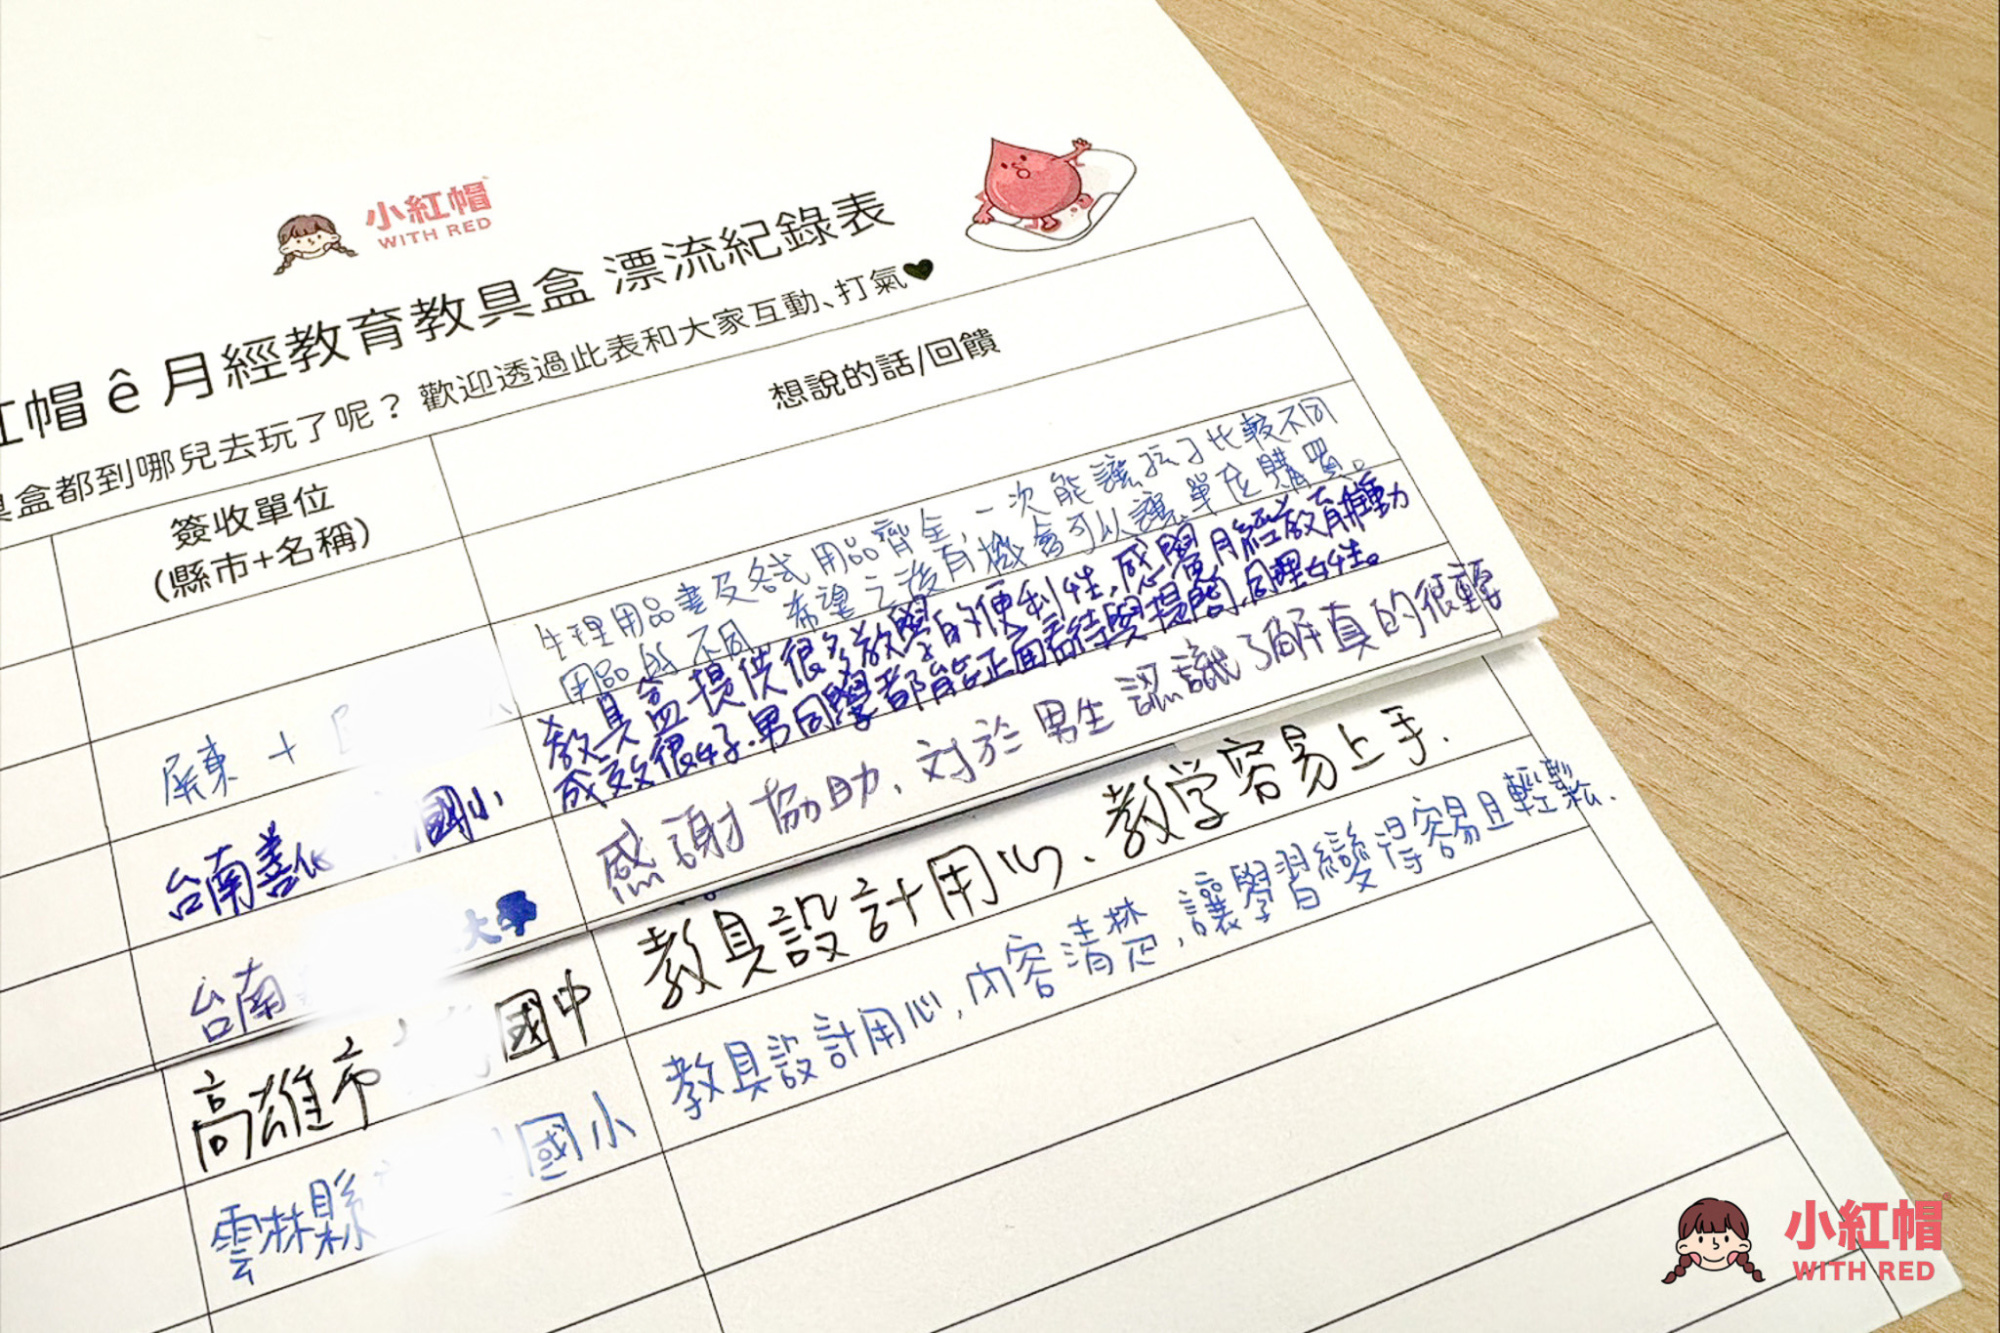 小紅帽
WITH RED
紅帽 ê 月經教育教具盒 漂流紀錄表
具盒都到哪兒去玩了呢？歡迎透過此表和大家互動、打氣♥
簽收單位
(縣市+名稱)
想說的話/回饋
屏東+
生理用品畫及各式用品齊全,一次能讓孩子比較不同
用品的不同,希望之後有機會可以讓單位購買。
台南善化 國小
教具盒提供很多教學的便利性,感覺月經教育推動
成效很好.男同學都能正面看待與提問,同理女性。
台南 大學
感謝協助、對於男生認識了解真的很重要
高雄市 國中
教具設計用心、教学容易上手.
雲林縣 國小
教具設計用心,內容清楚,讓學習變得容易且輕鬆.
小紅帽
WITH RED